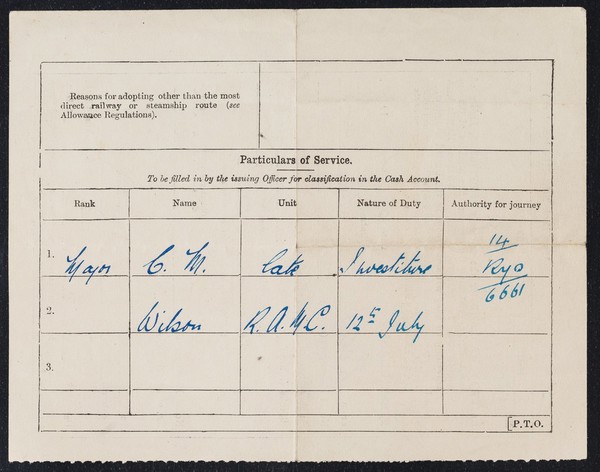 Reasons for adopting other than the most
direct railway or steamship route (see
Allowance Regulations).
Particulars of Service.
To be filled in by the issuing Officer for classification in the Cash Account.
Rank Name Unit Nature of Duty Authority for journey
1. Major C. M. late Investiture 14
Ryo
6661
2. Wilson R.A.M.C. 12th July
3.
[P.T.O.